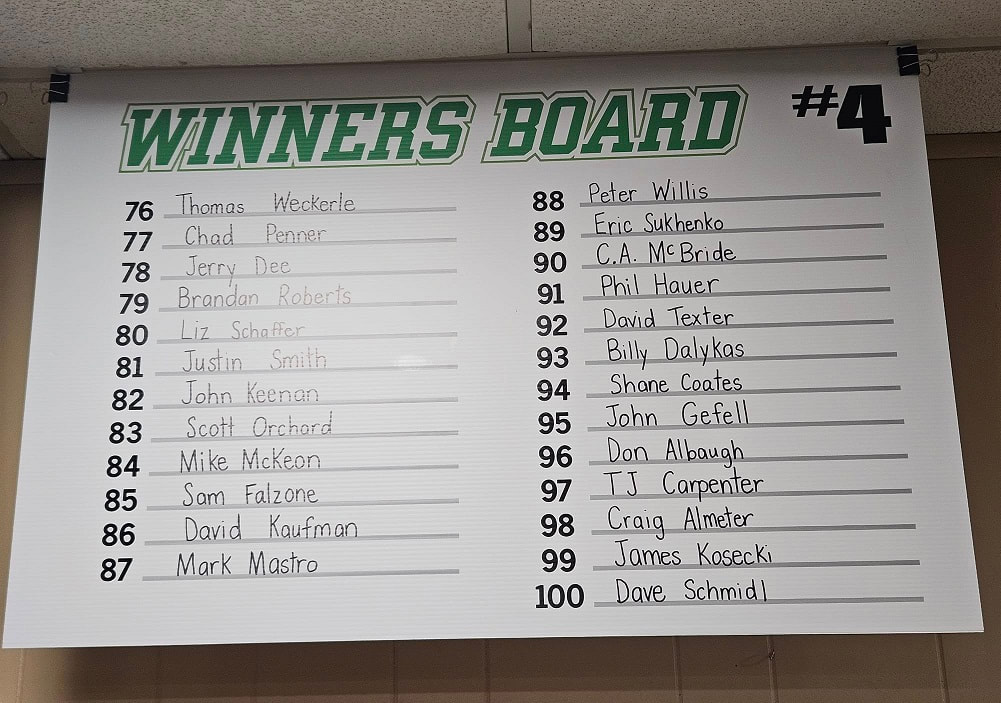 WINNERS BOARD #4
76 Thomas Weckerle
77 Chad Penner
78 Jerry Dee
79 Brandan Roberts
80 Liz Schaffer
81 Justin Smith
82 John Keenan
83 Scott Orchard
84 Mike McKeon
85 Sam Falzone
86 David Kaufman
87 Mark Mastro
88 Peter Willis
89 Eric Sukhenko
90 C.A. McBride
91 Phil Hauer
92 David Texter
93 Billy Dalykas
94 Shane Coates
95 John Gefell
96 Don Albaugh
97 TJ Carpenter
98 Craig Almeter
99 James Kosecki
100 Dave Schmidl